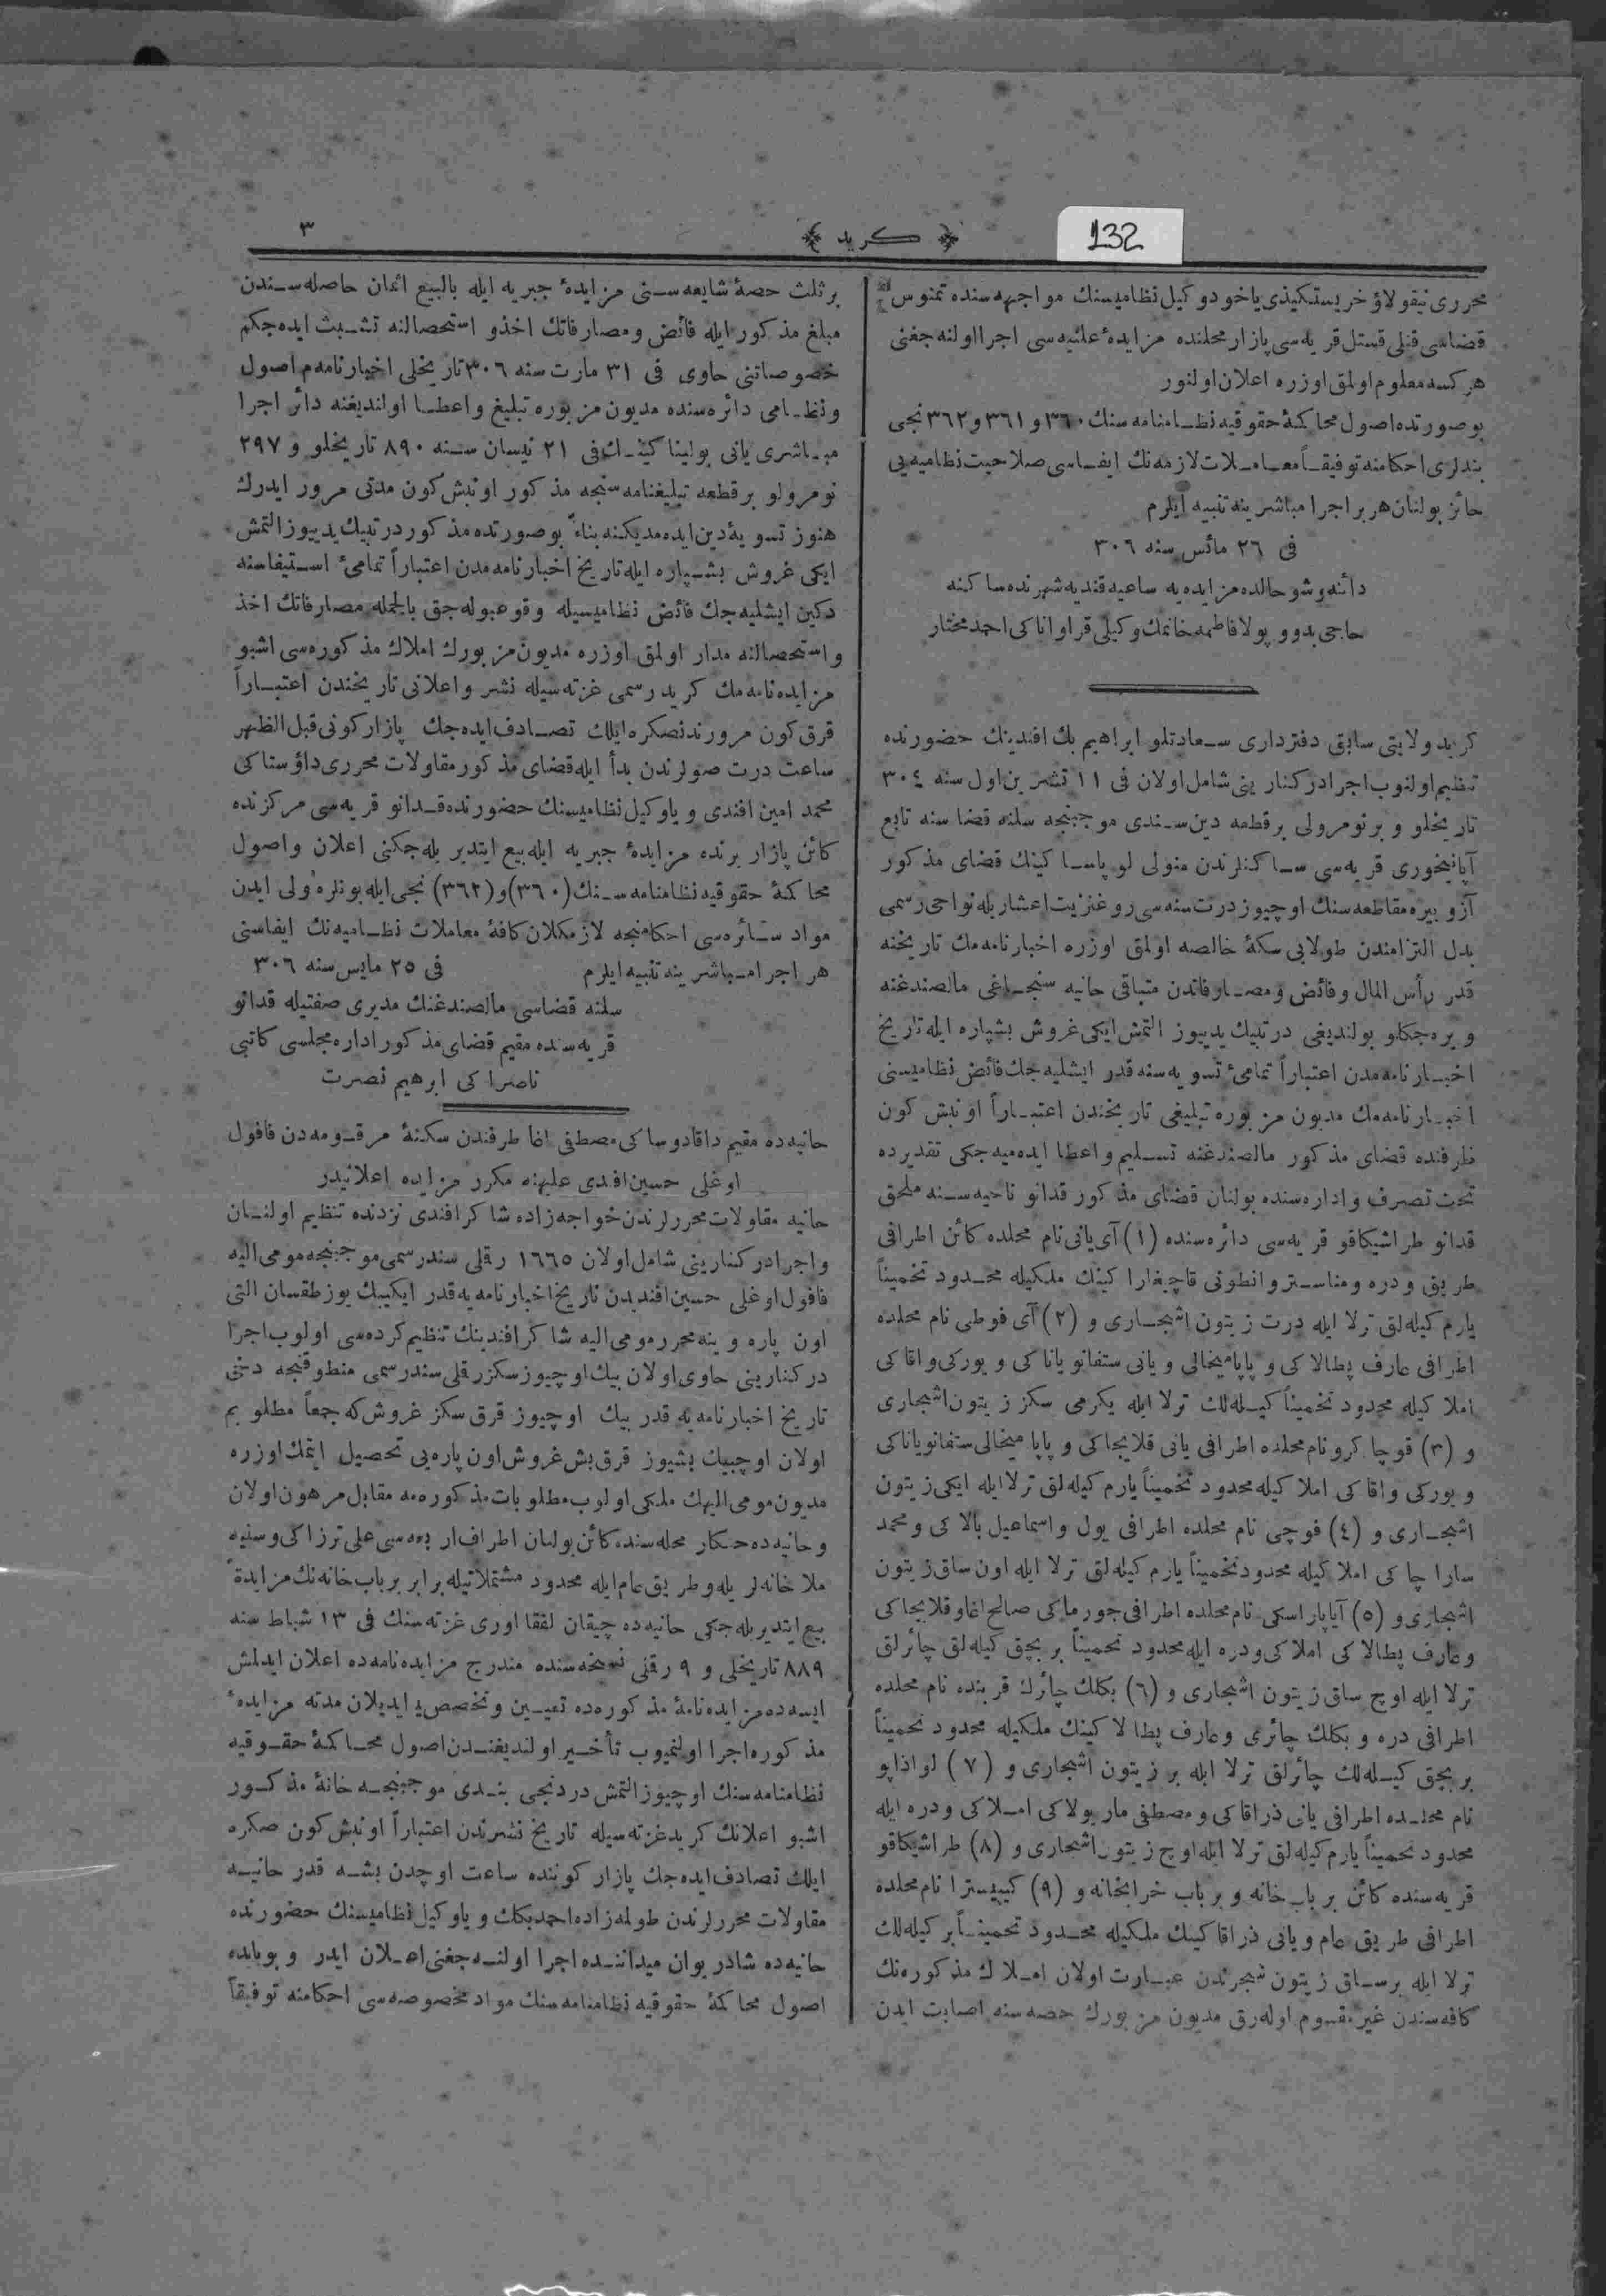 132
﴿ كريد ﴾
٣
محرری نيقولاؤ خريستكيذی ياخود وكيل نظاميسنك مواجهه سنده تمنوس
قضاسی قنلی قستل قريه سی پازار محلنده مزايدهٔ علنيه سی اجرا اولنه جغنی
هركسه معلوم اولمق اوزره اعلان اولنور
بو صورتده اصول محاكمهٔ حقوقيه نظامنامه سنك ٣٦٠ و ٣٦١ و ٣٦٢ نجی
بندلری احكامنه توفيقاً معاملات لازمه نك ايفاسی صلاحيت نظاميه يی
حائز بولنان هر بر اجرا مباشرينه تنبيه ايلرم
فی ٢٦ مائس سنه ٣٠٦
دائنه وشو حالده مزايده يه ساعيه قنديه شهرنده ساكنه
حاجی بدوو پولا فاطمه خانمك وكيلی قراواناكی احمد مختار
كريد ولايتی سابق دفترداری سعادتلو ابراهيم بك افندينك حضورنده
تنظيم اولنوب اجرا دركنارينی شامل اولان فی ١١ تشرين اول سنه ٣٠٤
تاريخلو و بر نومرولی برقطعه دين سندی موجبنجه سلنه قضاسنه تابع
آپانيخوری قريه سی ساكنلرندن منولی لوپاساكينك قضای مذكور
آزوبيره مقاطعه سنك اوچيوز درت سنه سی روغنزيت اعشاريله نواحی رسمی
بدل التزامندن طولايی سكهٔ خالصه اولمق اوزره اخبارنامه مك تاريخنه
قدر رأس المال وفائض ومصارفاتدن متباقی حانيه سنجاغی مالصندغنه
ويره جكلو بولنديغی درتبيك يديیوز التمش ايكی غروش بشپاره ايله تاريخ
اخبارنامه مدن اعتباراً تمامیٔ تسويه سنه قدر ايشليه جك فائض نظاميسنی
اخبارنامه مك مديون مزبوره تبليغی تاريخندن اعتباراً اونبش كون
ظرفنده قضای مذكور مالصندغنه تسليم واعطا ايده ميه جكی تقديرده
تحت تصرف واداره سنده بولنان قضای مذكور قدانو ناحيه سنه ملحق
قدانو طراشيكاقو قريه سی دائره سنده (١) آی يانی نام محلده كائن اطرافی
طريق ودره ومناستر وانطونی قاچغاراكينك ملكيله محدود تخميناً
يارم كيله لق ترلا ايله درت زيتون اشجاری و (٢) آی فوطی نام محلده
اطرافی عارف پطالاكی و پاپاميخالی و يانی ستفانوياناكی و يوركی واقاكی
املاكيله محدود تخميناً كيله لك ترلا ايله يكرمی سكز زيتون اشجاری
و (٣) قوچاكرو نام محلده اطرافی يانی قلابجاكی و پاپا ميخالی ستفانوياناكی
و يوركی واقاكی املاكيله محدود تخميناً يارم كيله لق ترلا ايله ايكی زيتون
اشجاری و (٤) فوچی نام محلده اطرافی يول واسماعيل بالاكی ومحمد
ساراچاكی املاكيله محدود تخميناً يارم كيله لق ترلا ايله اون ساق زيتون
اشجاری و (٥) آياپاراسكی نام محلده اطرافی جورماكی صالح اغا وقلابجاكی
وعارف پطالاكی املاكی ودره ايله محدود تخميناً بر بچق كيله لق چائرلق
ترلا ايله اوچ ساق زيتون اشجاری و (٦) بكلك چائرك قربنده نام محلده
اطرافی دره و بكلك چائری وعارف پطالاكينك ملكيله محدود تخميناً
بر بچق كيله لك چائرلق ترلا ايله بر زيتون اشجاری و (٧) لواذاپو
نام محلده اطرافی يانی ذراقاكی ومصطفی ماريولاكی املاكی ودره ايله
محدود تخميناً يارم كيله لق ترلا ايله اوچ زيتون اشجاری و (٨) طراشيكاقو
قريه سنده كائن بر باب خانه و بر باب خرابخانه و (٩) كيپسترا نام محلده
اطرافی طريق عام ويانی ذراقاكينك ملكيله محدود تخميناً بر كيله لك
ترلا ايله برساق زيتون شجرندن عبارت اولان املاك مذكوره نك
كافه سندن غيرمقسوم اوله رق مديون مزبورك حصه سنه اصابت ايدن
برثلث حصهٔ شايعه سنی مزايدهٔ جبريه ايله بالبيع اثمان حاصله سندن
مبلغ مذكور ايله فائض ومصارفاتك اخذو استحصالنه تشبث ايده جكم
خصوصاتنی حاوی فی ٣١ مارت سنه ٣٠٦ تاريخلی اخبارنامه م اصول
ونظامی دائره سنده مديون مزبوره تبليغ واعطا اولنديغنه دائر اجرا
مباشری يانی بوليناكينك فی ٢١ نيسان سنه ٨٩٠ تاريخلو و ٢٩٧
نومرولو برقطعه تبليغنامه سنجه مذكور اونبش كون مدتی مرور ايدرك
هنوز تسويهٔ دين ايده مديكنه بناءً بو صورتده مذكور درتبيك يديیوز التمش
ايكی غروش بشپاره ايله تاريخ اخبارنامه مدن اعتباراً تمامیٔ استيفاسنه
دكين ايشليه جك فائض نظاميسيله وقوعبوله جق بالجمله مصارفاتك اخذ
واستحصالنه مدار اولمق اوزره مديون مزبورك املاك مذكوره سی اشبو
مزايده نامه مك كريد رسمی غزته سيله نشر واعلانی تاريخندن اعتباراً
قرق كون مرورندنصكره ايلك تصادف ايده جك پازار كونی قبل الظهر
ساعت درت صولرندن بدأ ايله قضای مذكور مقاولات محرری داؤستاكی
محمد امين افندی و ياوكيل نظاميسنك حضورنده قدانو قريه سی مركزنده
كائن پازار يرنده مزايدهٔ جبريه ايله بيع ايتديريله جكنی اعلان واصول
محاكمهٔ حقوقيه نظامنامه سنك (٣٦٠) و (٣٦٢) نجی ايله بونلره ولی ايدن
مواد سائره سی احكامنجه لازمكلان كافهٔ معاملات نظاميه نك ايفاسنی
هر اجرا مباشرينه تنبيه ايلرم فی ٢٥ مايس سنه ٣٠٦
سلنه قضاسی مالصندغنك مديری صفتيله قدانو
قريه سنده مقيم قضای مذكور اداره مجلسی كاتبی
ناصراكی ابرهيم نصرت
حانيه ده مقيم داقادوساكی مصطفی اغا طرفندن سكنهٔ مرقومه دن فافول
اوغلی حسين افندی عليهنه مكرر مزايده اعلانيدر
حانيه مقاولات محررلرندن خواجه زاده شاكر افندی نزدنده تنظيم اولنان
واجرا دركنارينی شامل اولان ١٦٦٥ رقملی سند رسمی موجبنجه مومی اليه
فافول اوغلی حسين افنديدن تاريخ اخبارنامه يه قدر ايكيبك يوز طقسان التی
اون پاره و ينه محرر مومی اليه شاكر افندينك تنظيم كرده سی اولوب اجرا
دركنارينی حاوی اولان بيك اوچيوز سكز رقملی سند رسمی منطوقنجه دخی
تاريخ اخبارنامه يه قدر بيك اوچيوز قرق سكز غروش كه جمعاً مطلوبم
اولان اوچبيك بشيوز قرق بش غروش اون پاره يی تحصيل ايتمك اوزره
مديون مومی اليهك ملكی اولوب مطلوبات مذكوره مه مقابل مرهون اولان
وحانيه ده حنكار محله سنده كائن بولنان اطراف اربعه سی علی ترزاكی وسنيه
ملا خانه لريله وطريق عام ايله محدود مشتملاتيله برابر برباب خانه نك مزايدهٔ
بيع ايتديريله جكی حانيه ده چيقان لفقا اوری غزته سنك فی ١٣ شباط سنه
٨٨٩ تاريخلی و ٩ رقملی نسخه سنده مندرج مزايده نامه ده اعلان ايدلمش
ايسه ده مزايده نامهٔ مذكوره ده تعيين وتخصيص ايديلان مدته مزايدهٔ
مذكوره اجرا اولنميوب تأخير اولنديغندن اصول محاكمهٔ حقوقيه
نظامنامه سنك اوچيوز التمش دردنجی بندی موجبنجه خانهٔ مذكور
اشبو اعلانك كريد غزته سيله تاريخ نشرندن اعتباراً اونبش كون صكره
ايلك تصادف ايده جك پازار كوننده ساعت اوچدن بشه قدر حانيه
مقاولات محررلرندن طولمه زاده احمد بكك و ياوكيل نظاميسنك حضورنده
حانيه ده شادروان ميداننده اجرا اولنه جغنی اعلان ايدر و بوبابده
اصول محاكمهٔ حقوقيه نظامنامه سنك مواد مخصوصه سی احكامنه توفيقاً